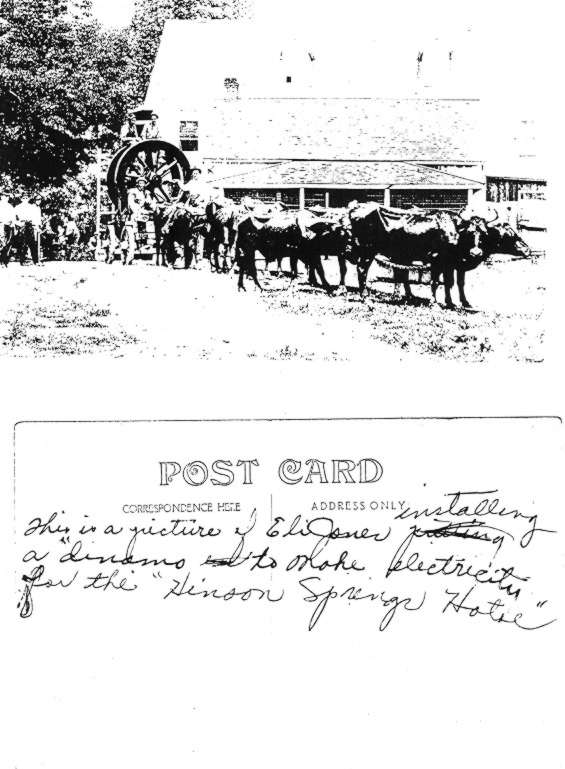 POST CARD
CORRESPONDENCE HERE
ADDRESS ONLY
This is a picture of Eli Jones installing
a "dinamo to make electricity
for the "Hinson Springs Hotel"